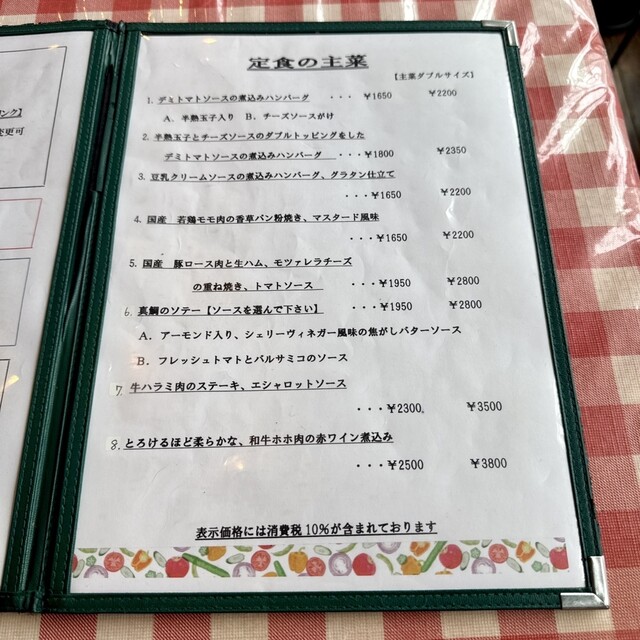 ンク】
変更可
定食の主菜
【主菜ダブルサイズ】
1. デミトマトソースの煮込みハンバーグ ・・・ ￥1650 ￥2200
A．半熟玉子入り B．チーズソースがけ
2. 半熟玉子とチーズソースのダブルトッピングをした
デミトマトソースの煮込みハンバーグ ・・・￥1800 ￥2350
3. 豆乳クリームソースの煮込みハンバーグ、グラタン仕立て
・・・￥1650 ￥2200
4. 国産 若鶏モモ肉の香草パン粉焼き、マスタード風味
・・・￥1650 ￥2200
5. 国産 豚ロース肉と生ハム、モツァレラチーズ
の重ね焼き、トマトソース ・・・￥1950 ￥2800
6. 真鯛のソテー【ソースを選んで下さい】 ・・・￥1950 ￥2800
A．アーモンド入り、シェリーヴィネガー風味の焦がしバターソース
B．フレッシュトマトとバルサミコのソース
7. 牛ハラミ肉のステーキ、エシャロットソース
・・・￥2300 ￥3500
8. とろけるほど柔らかな、和牛ホホ肉の赤ワイン煮込み
・・・￥2500 ￥3800
表示価格には消費税10％が含まれております